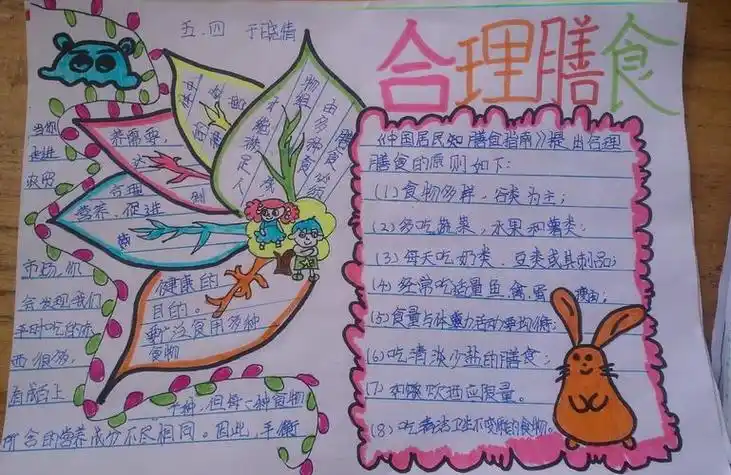 五.四 于晓倩
合理膳食
《中国居民知膳食指南》提出合理
膳食的原则如下:
(1)食物多样,谷类为主;
(2)多吃蔬菜,水果和薯类;
(3)每天吃奶类、豆类或其制品;
(4)经常吃适量鱼,禽,蛋 瘦肉;
(5)食量与体力活动要均衡;
(6)吃清淡少盐的膳食;
(7) 饮酒应限量。
(8)吃清洁卫生不变质的食物。
膳食必须
由多种食
物组
才能满足人
养需要,
达
合理
营养,促进
健康的
目的。
食用多种
食物
当你
走进
农贸
市场,你
会发现我们
平时吃的东
西很多,
上
千种,但每一种食物
所含的营养成分不尽相同。因此,平衡